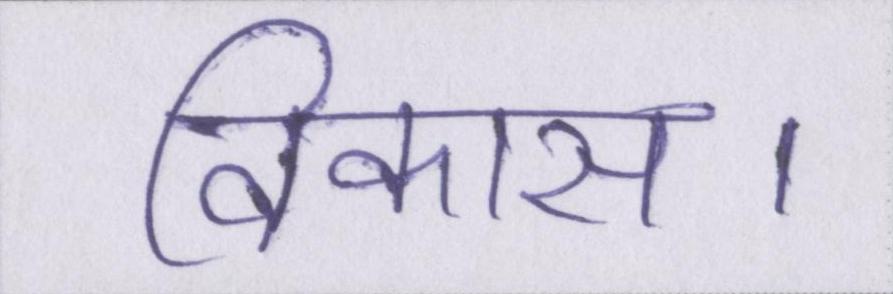 विकास ।